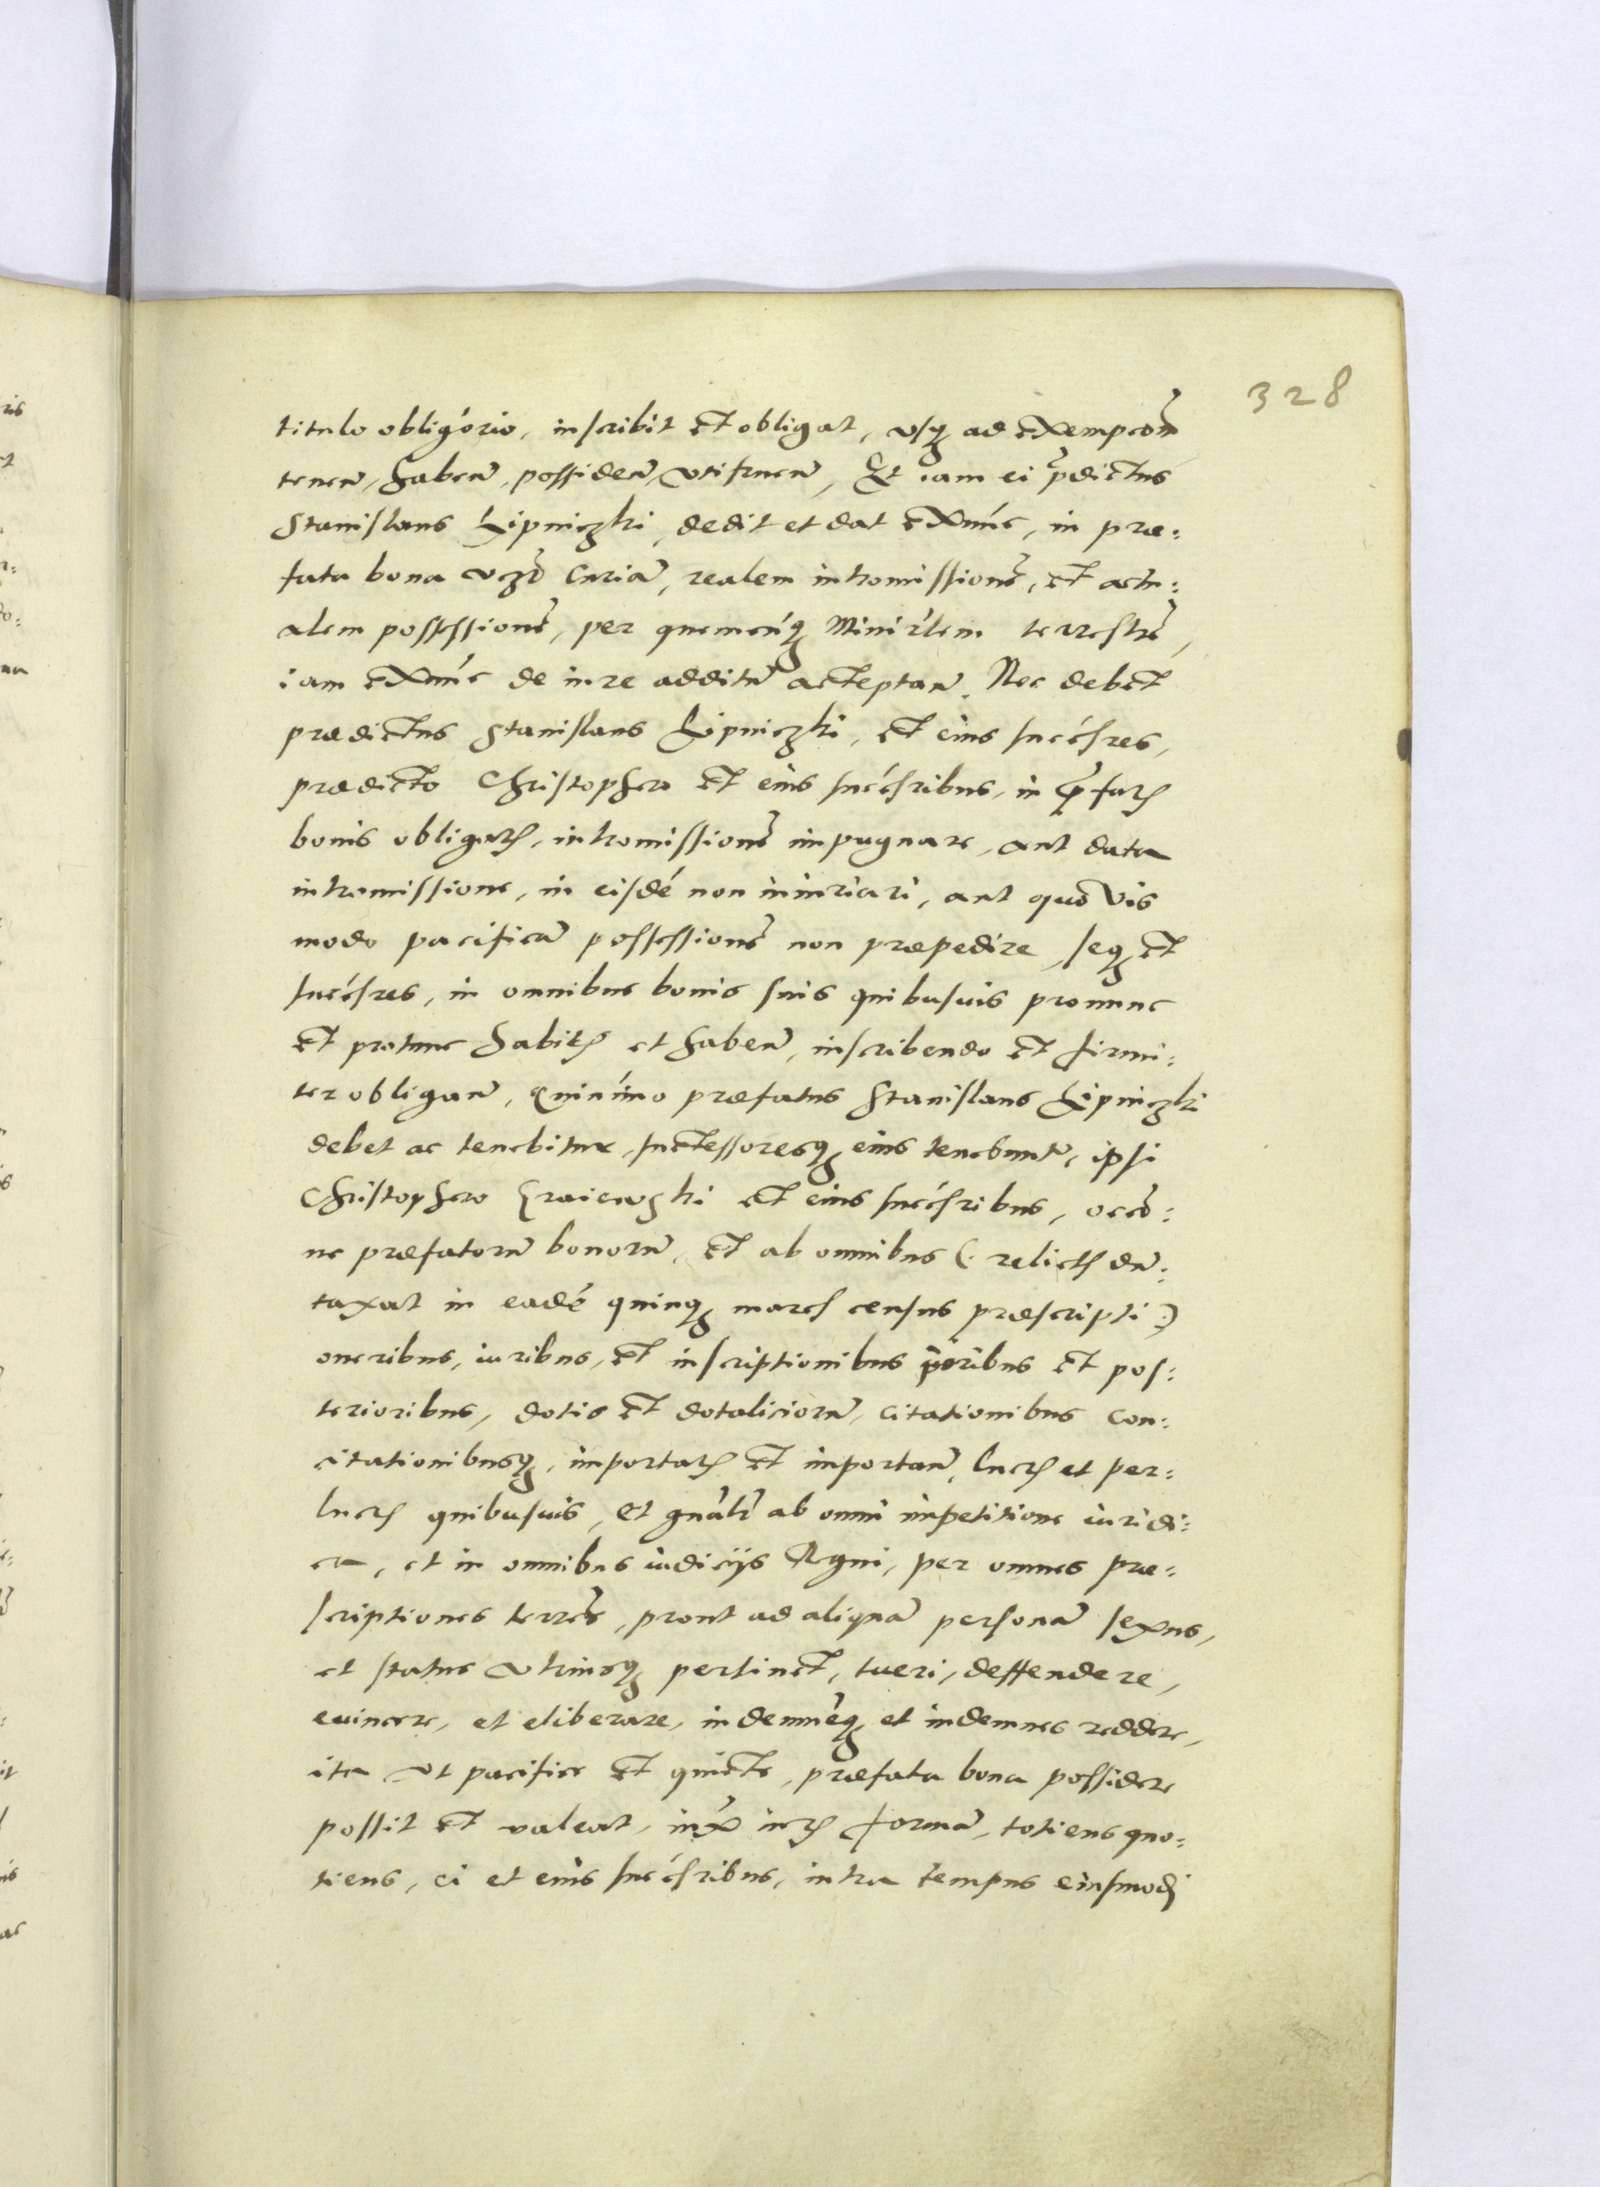 328
titulo obligório, inscribit et obligat, vsq; ad exempcõm
tenen̄, haben̄, possiden̄, vtifruen̄, Et iam ei p̄dictus
Stanislaus Lipniczki, dedit et dat exnúc, in præ:
fata bona vcz̄ Curiā, realem intromissionē, et actu:
alem possessionē, per quemcúq; Minir̄lem terrestrē,
iam exnúc de iure additū acceptan̄. Nec debet
prædictus Stanislaus Lipniczki, et eius succésres,
prædicto Christophero et eius succésribus, in p̄fatis
bonis obligatis, intromissionē impugnare, aut data
intromissione, in eisdé non iniuriari, aut quo vis
modo pacificā possessionē non præpedire, seq; et
succésres, in omnibus bonis suis quibusuis pronunc
et protunc habitis et haben̄, inscribendo et firmi:
ter obligan̄, Quinímo præfatus Stanislaus Lipniczki
debet ac tenebitur, successoresq; eius tenebunt̄, ipsi
Christophero Kraiewski et eius succésribus, occõ:
ne præfatorū bonorū, et ab omnibus (: relictis dū:
taxat in eadé quinq; marcis census præscripti :)
oneribus, iuribus, et inscriptionibus p̄oribus et pos:
terioribus, dotis et dotaliciorū, citationibus con:
citationibusq;, importatis et importan̄, lucris et per:
lucris quibusuis, et gn̄alr̄ ab omni impetitione iuridi:
ca, et in omnibus iudicijs Regni, per omnes præ:
scriptiones terrēs, prout ad aliquā personā sexus,
et status vtriusq; pertinet, tueri, deffendere,
euincere, et eliberare, indemnēq; et indemnes reddere,
ita vt pacifice et quiete, præfata bona possidere
possit et valeat, iux̄ iuris formā, totiens quo:
tiens, ei et eius succésribus, intra tempus eiusmodi